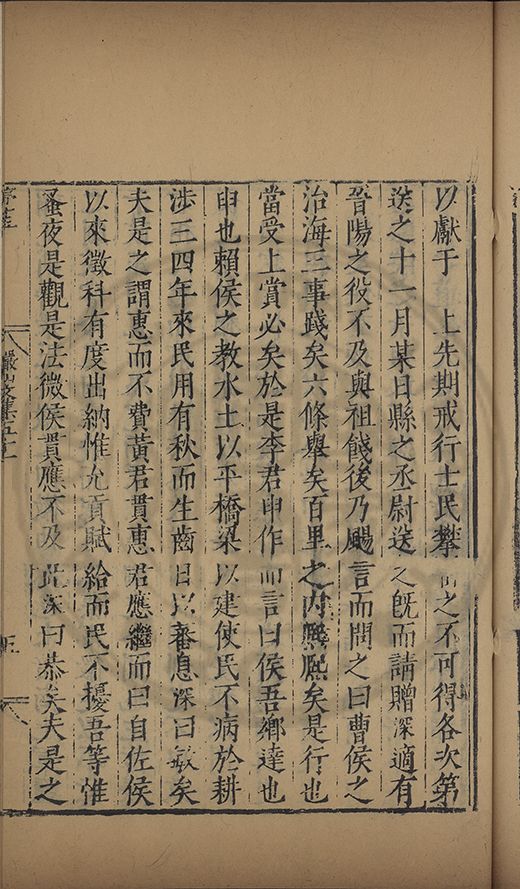 以獻于　上先期戒行士民攀之不可得各次第
送之十一月某日縣之丞尉送之既而請贈深適有
晉陽之役不及與祖餞後乃颺言而問之曰曹侯之
治海三事踐矣六條舉矣百里之內熙熙矣是行也
當受上賞必矣於是李君申作而言曰侯吾鄉達也
申也賴侯之教水土以平橋梁以建使民不病於耕
涉三四年來民用有秋而生齒日以審息深曰敏矣
夫是之謂惠而不費黃君貫惠君應繼而曰自佐侯
以來徵科有度出納惟允貢賦給而民不擾吾等惟
蚤夜是觀是法微侯貫應不及此深曰恭矣夫是之